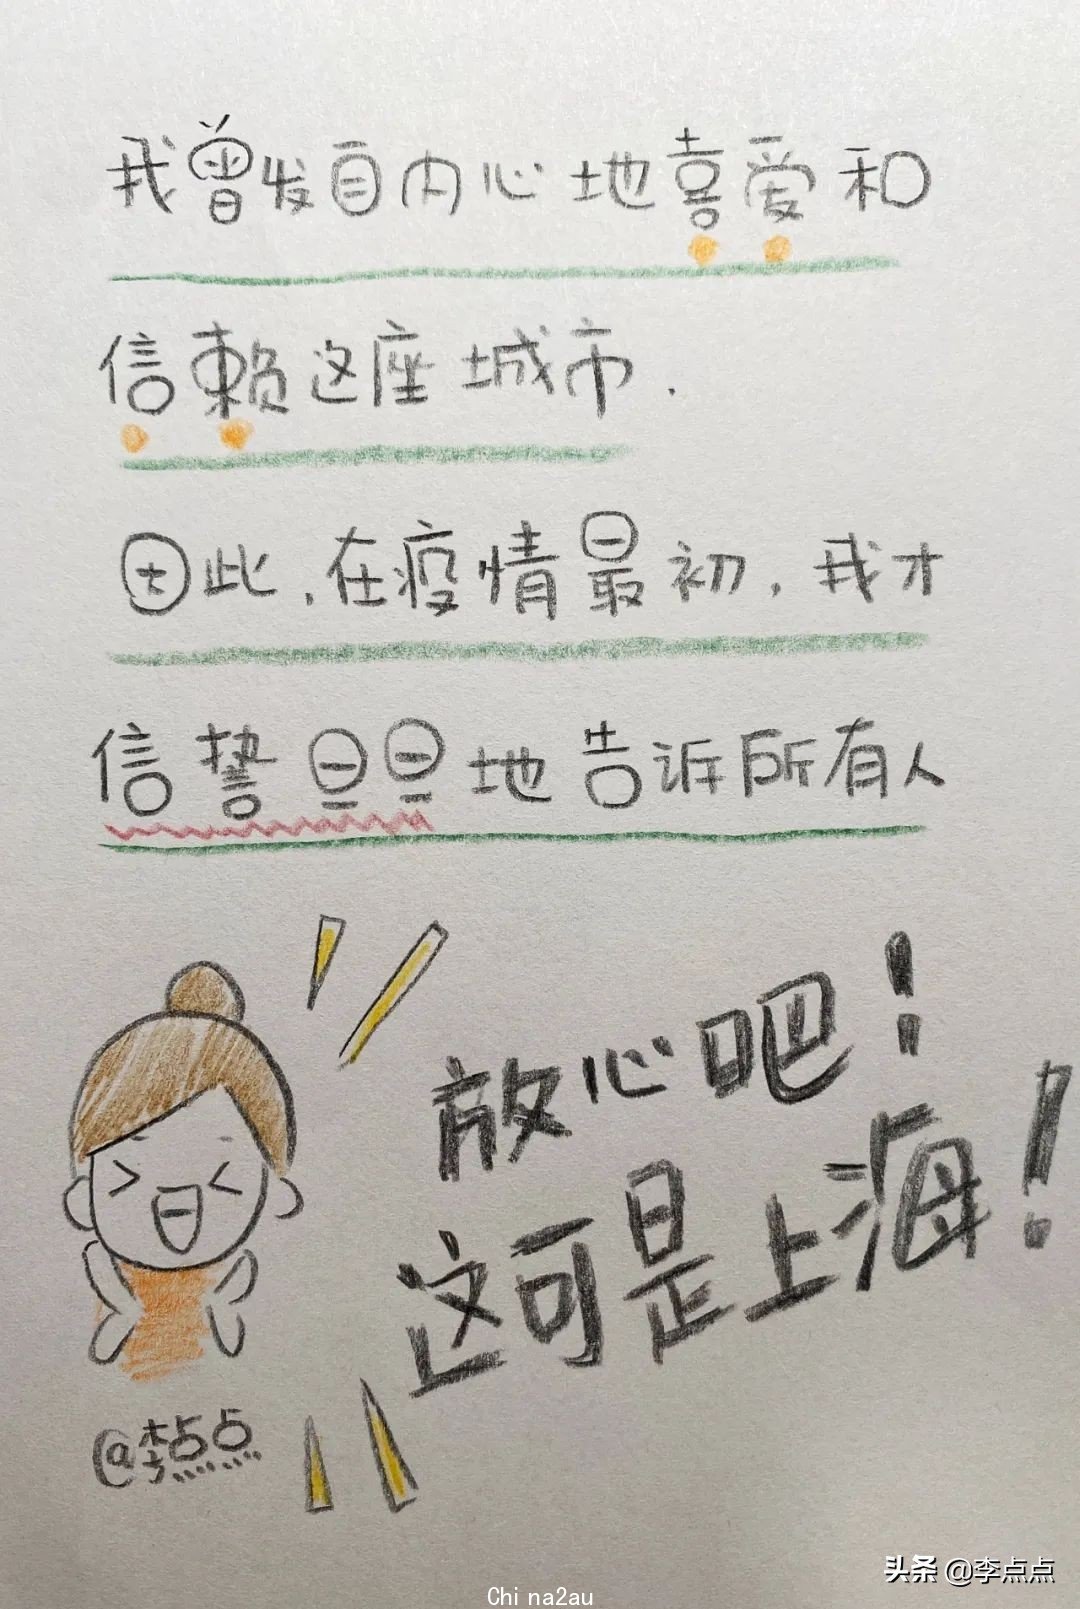 我曾发自内心地喜爱和
信赖这座城市.
因此,在疫情最初,我才
信誓旦旦地告诉所有人
放心吧!
这可是上海!
@李点点
头条 @李点点
China2au